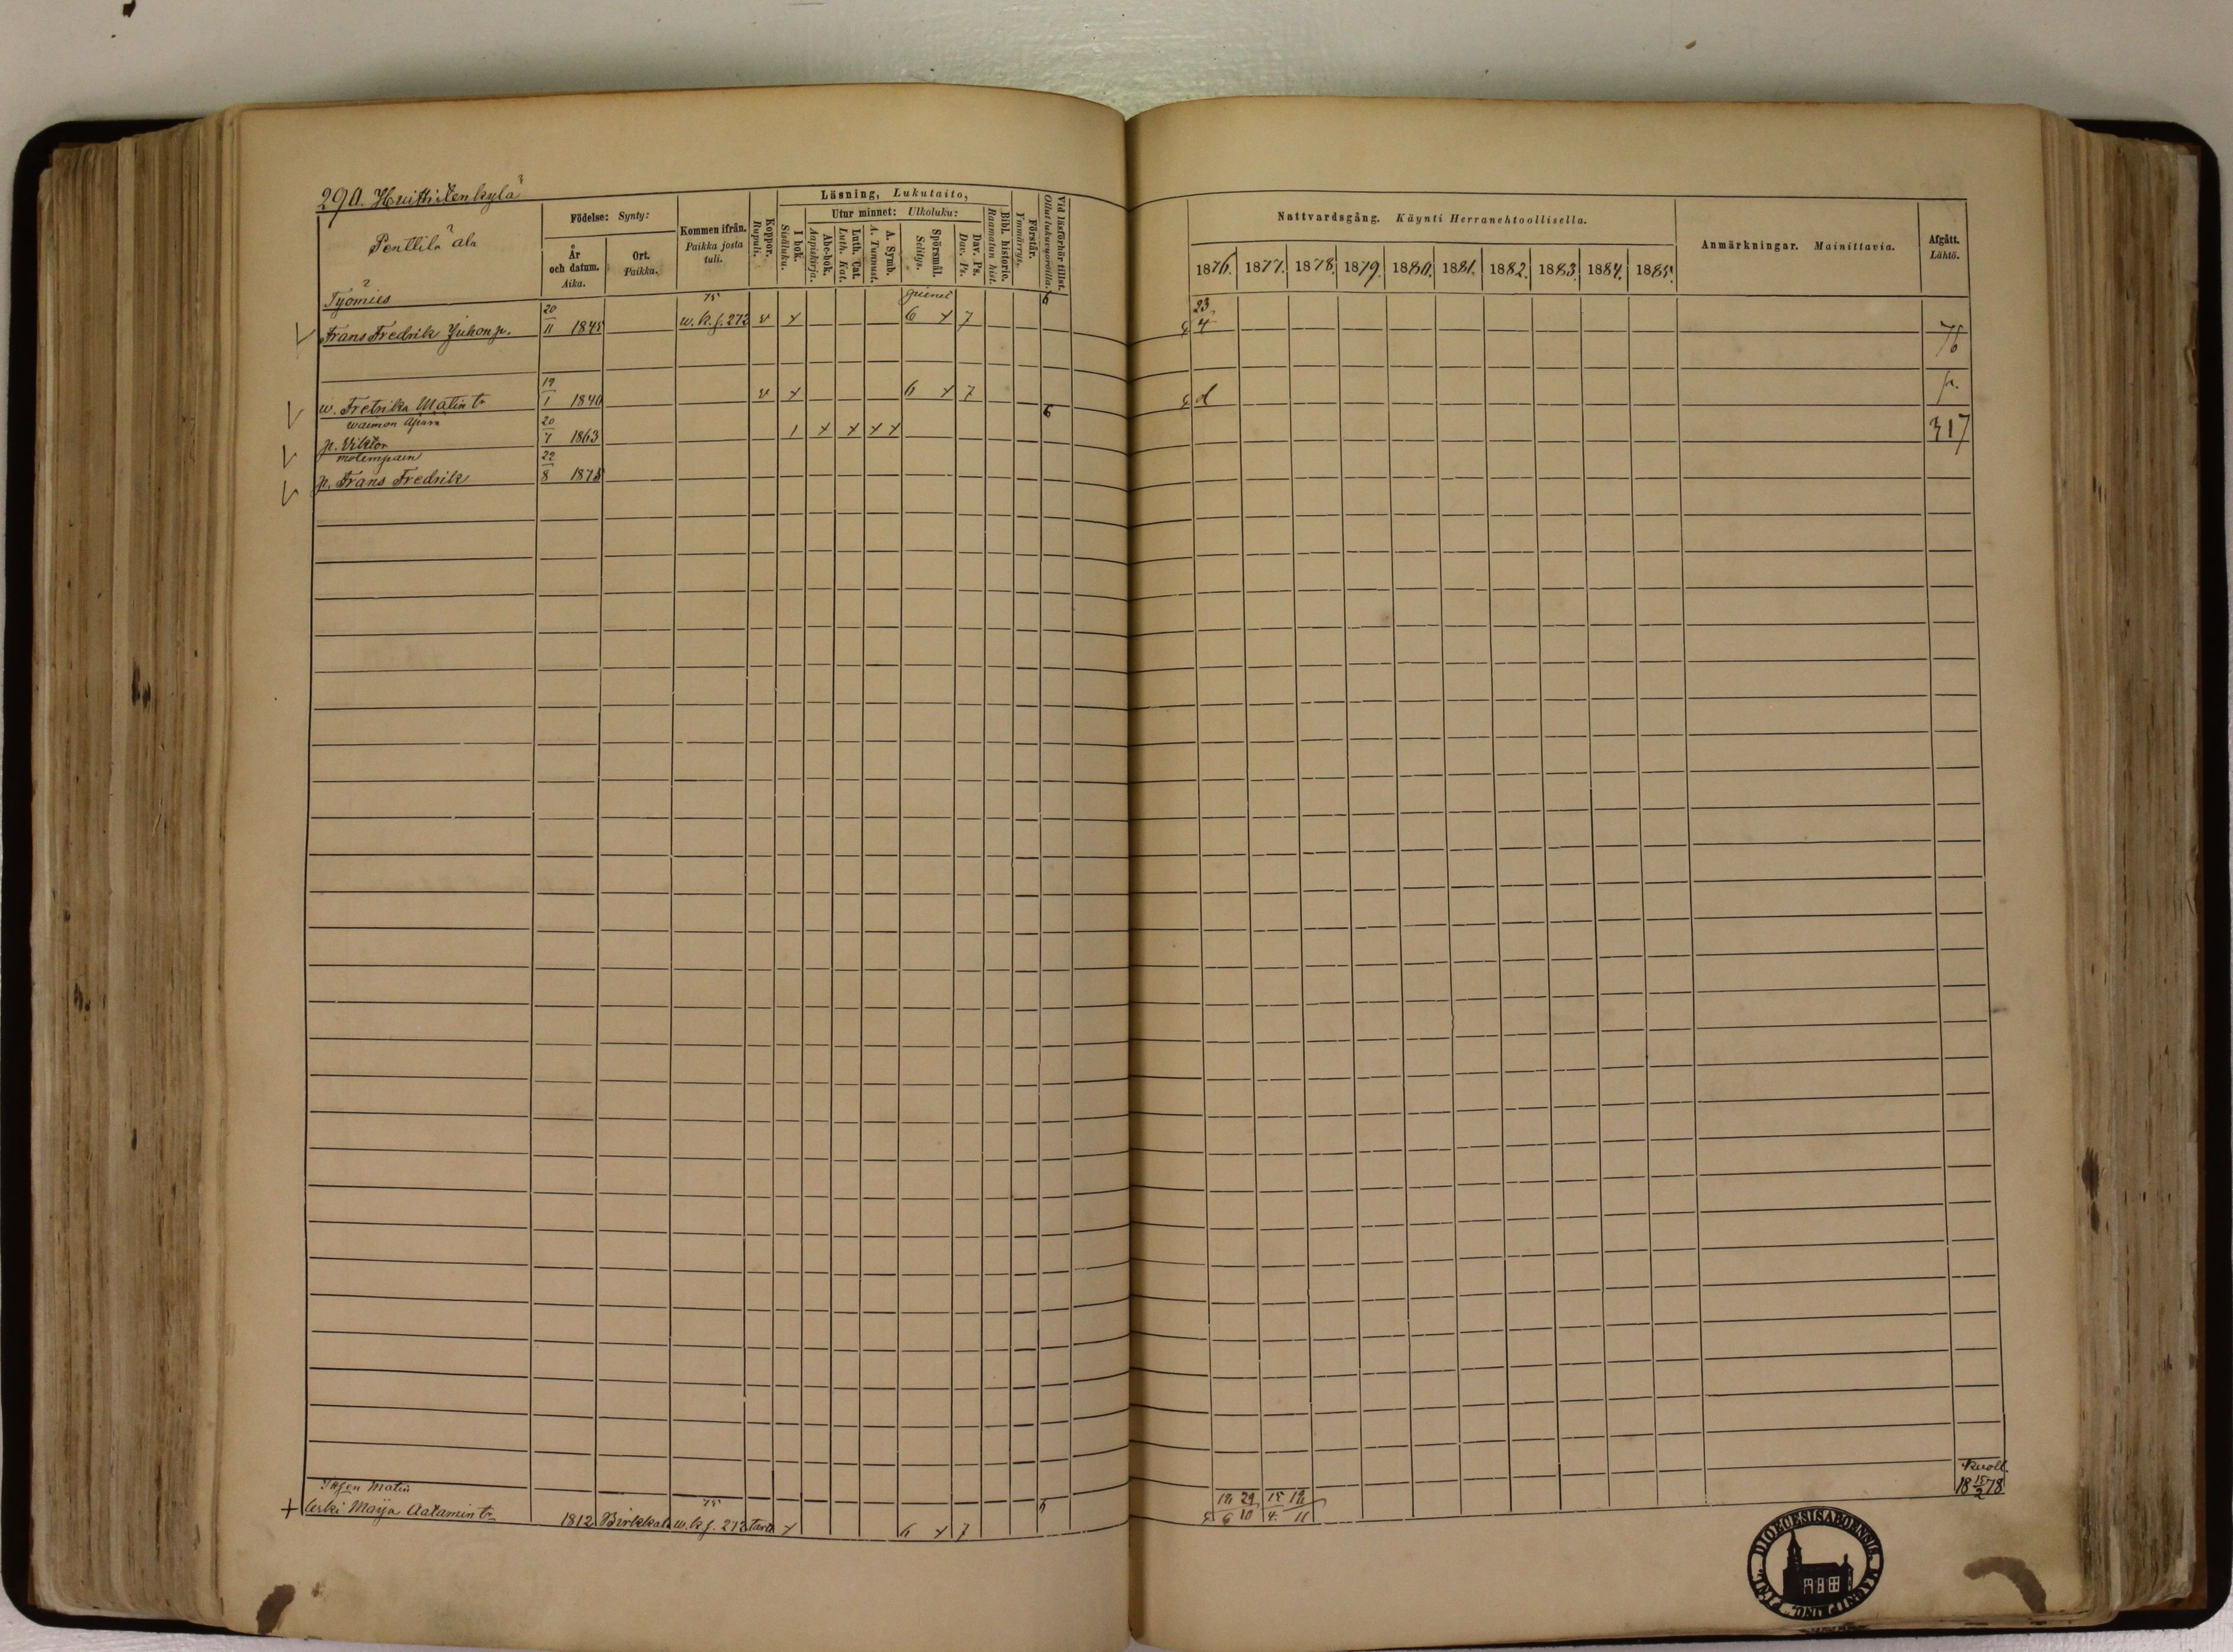 290.
Penttilä ala
Födelse: Synty:
År och datum. Aika.
Ort. Paikka.
Kommen ifrån. Paikka josta tuli.
Koppor. Rupuli.
Läsning, Lukutaito,
I bok. Sisäluku.
Utur minnet: Ulkoluku:
Abc-bok. Aapiskirja.
Luth. Cat. Luth. Kat.
A. Symb. A. Tunnust.
Spörsmål. Selitys.
Dav. Ps. Dav. Ps.
Bibl. historie. Raamatun hist.
Förstår. Ymmärrys.
Vid läsförhör tillst. Ollut lukuvuoroilla.
Nattvardsgång. Käynti Herranehtoollisella.
1876. 1877. 1878. 1879. 1880. 1881. 1882. 1883. 1884. 1885.
Anmärkningar. Mainittavia.
Afgått. Lähtö.
Työmies 75
Frans Fredrik Juhon p. 20/11 1845 w.k.s. 272 6 7 23/4 76
w. Fretrika Matin tr 19/1 1840 6 7 p.
waimon
p. Viktor 20/7 1863 1 317
molempain
p. Frans Fredrik 22/8 1875
Matin 75 Kuoll.
leski Maija Aatamin tr 1812 Birkkala w.k.s. 272 6 7 29/10 15/4 18 15/2 78
DIOECESIS ABOENSIS